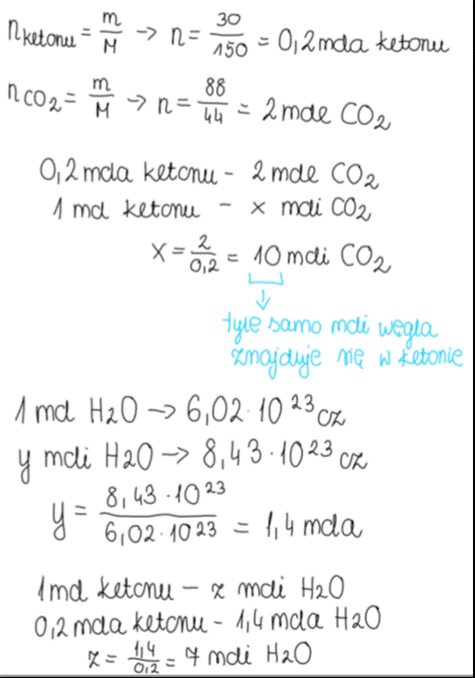 n ketonu = m/M -> n = 30/150 = 0,2 mola ketonu
n CO2 = m/M -> n = 88/44 = 2 mole CO2
0,2 mola ketonu - 2 mole CO2
1 mol ketonu - x moli CO2
x = 2/0,2 = 10 moli CO2
tyle samo moli węgla
znajduje się w ketonie
1 mol H2O -> 6,02·10^23 cz
y moli H2O -> 8,43·10^23 cz
y = 8,43·10^23 / 6,02·10^23 = 1,4 mola
1 mol ketonu - z moli H2O
0,2 mola ketonu - 1,4 mola H2O
z = 1,4/0,2 = 7 moli H2O